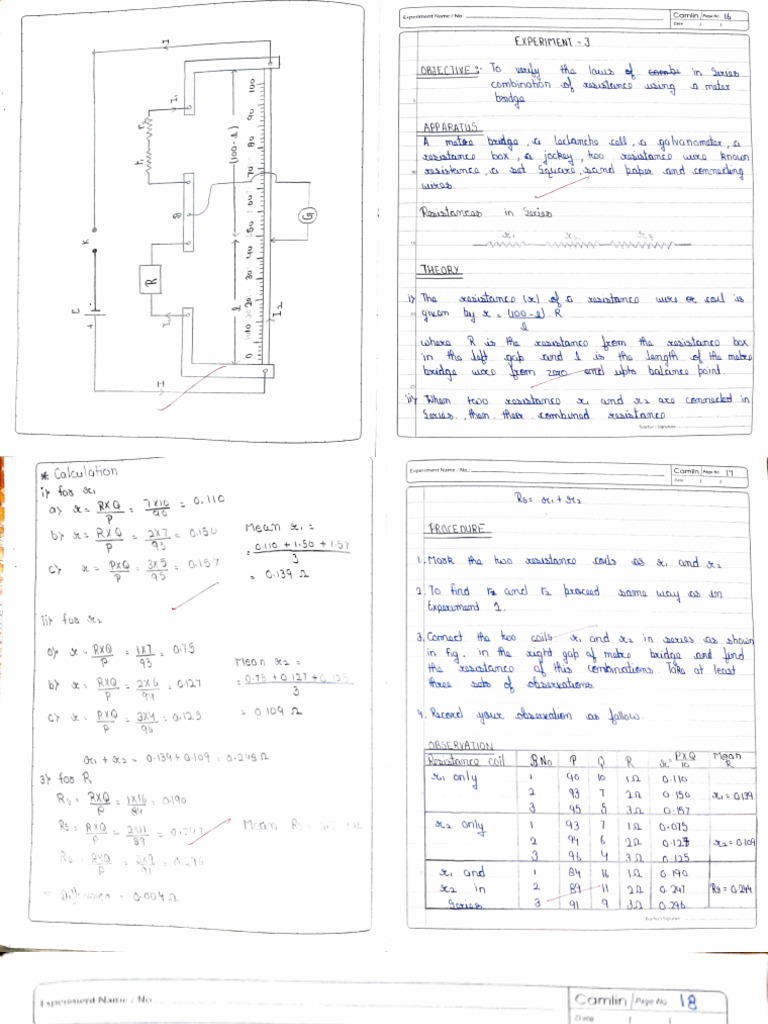 Experiment Name / No.
Camlin Page No. 16
Date / /
EXPERIMENT - 3
OBJECTIVE :- To verify the laws of combi in Series
combination of resistance using a meter
bridge
APPARATUS
A metre bridge, a leclanche cell, a galvanometer, a
resistance box, a jockey, two resistance wire known
resistance, a set square, sand paper and connecting
wires.
Resistances in Series
THEORY
i) The resistance (x) of a resistance wire or coil is
given by x = (100-l) R
l
where R is the resistance from the resistance box
in the left gap and l is the length of the metre
bridge wire from zero end upto balance point.
ii) When two resistance r1 and r2 are connected in
Series, then their combined resistance
Teacher's Signature
E
K
I
R
r1
r2
I1
B
G
I2
l
(100-l)
0 10 20 30 40 50 60 70 80 90 100
* Calculation
i) for r1
a) x = RXQ/P = 7X10/90 = 0.110
b) x = RXQ/P = 2X7/93 = 0.150
c) x = PXQ/P = 3X5/95 = 0.157
Mean r1 =
= 0.110 + 1.50 + 1.57
3
= 0.139 Ω
ii) for r2
a) x = RXQ/P = 1X7/93 = 0.75
b) x = RXQ/P = 2X6/94 = 0.127
c) x = RXQ/P = 3X4/96 = 0.125
Mean r2 =
= 0.75 + 0.127 + 0.125
3
= 0.109 Ω
r1 + r2 = 0.139 + 0.109 = 0.248 Ω
3) for R
Rs = RXQ/P = 1X16/84 = 0.190
Rs = RXQ/P = 2X11/89 = 0.247
Rs = RXQ/P = 3X9/91 = 0.296
Mean Rs
Difference = 0.004 Ω
Experiment Name / No.
Camlin Page No. 17
Date / /
Rs = r1 + r2
PROCEDURE
1. Mark the two resistance coils as r1 and r2
2. To find r1 and r2 proceed same way as in
Experiment 1.
3. Connect the two coils r1 and r2 in series as shown
in fig. in the right gap of metre bridge and find
the resistance of this combinations. Take at least
three sets of observations.
4. Record your observation as follow.
OBSERVATION
Resistance coil S.No P Q R x = PXQ/10 Mean R
r1 only 1 90 10 1Ω 0.110
2 93 7 2Ω 0.150 r1 = 0.139
3 95 5 3Ω 0.157
r2 only 1 93 7 1Ω 0.075
2 94 6 2Ω 0.127 r2 = 0.109
3 96 4 3Ω 0.125
r1 and 1 84 16 1Ω 0.190
r2 in 2 89 11 2Ω 0.247 Rs = 0.244
Series 3 91 9 3Ω 0.296
Teacher's Signature
Experiment Name / No.
Camlin Page No. 18
Date / /